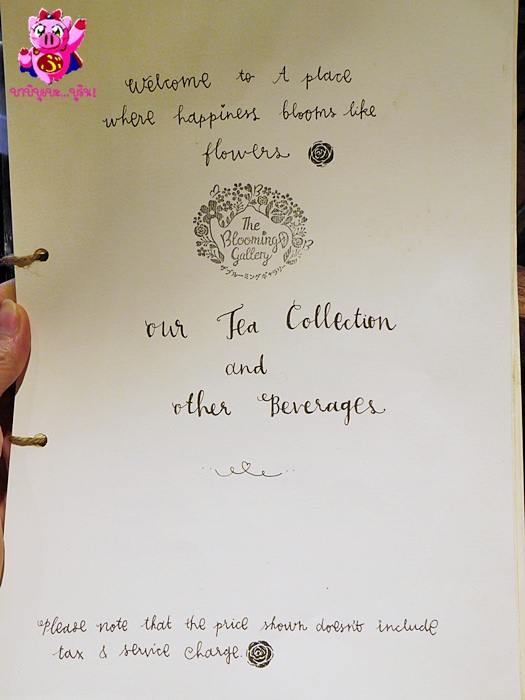 Welcome to A place
where happiness blooms like
flowers
The
Blooming
Gallery
ザブルーミングギャラリー
our Tea Collection
and
other Beverages
please note that the price shown doesn't include
tax & service charge.